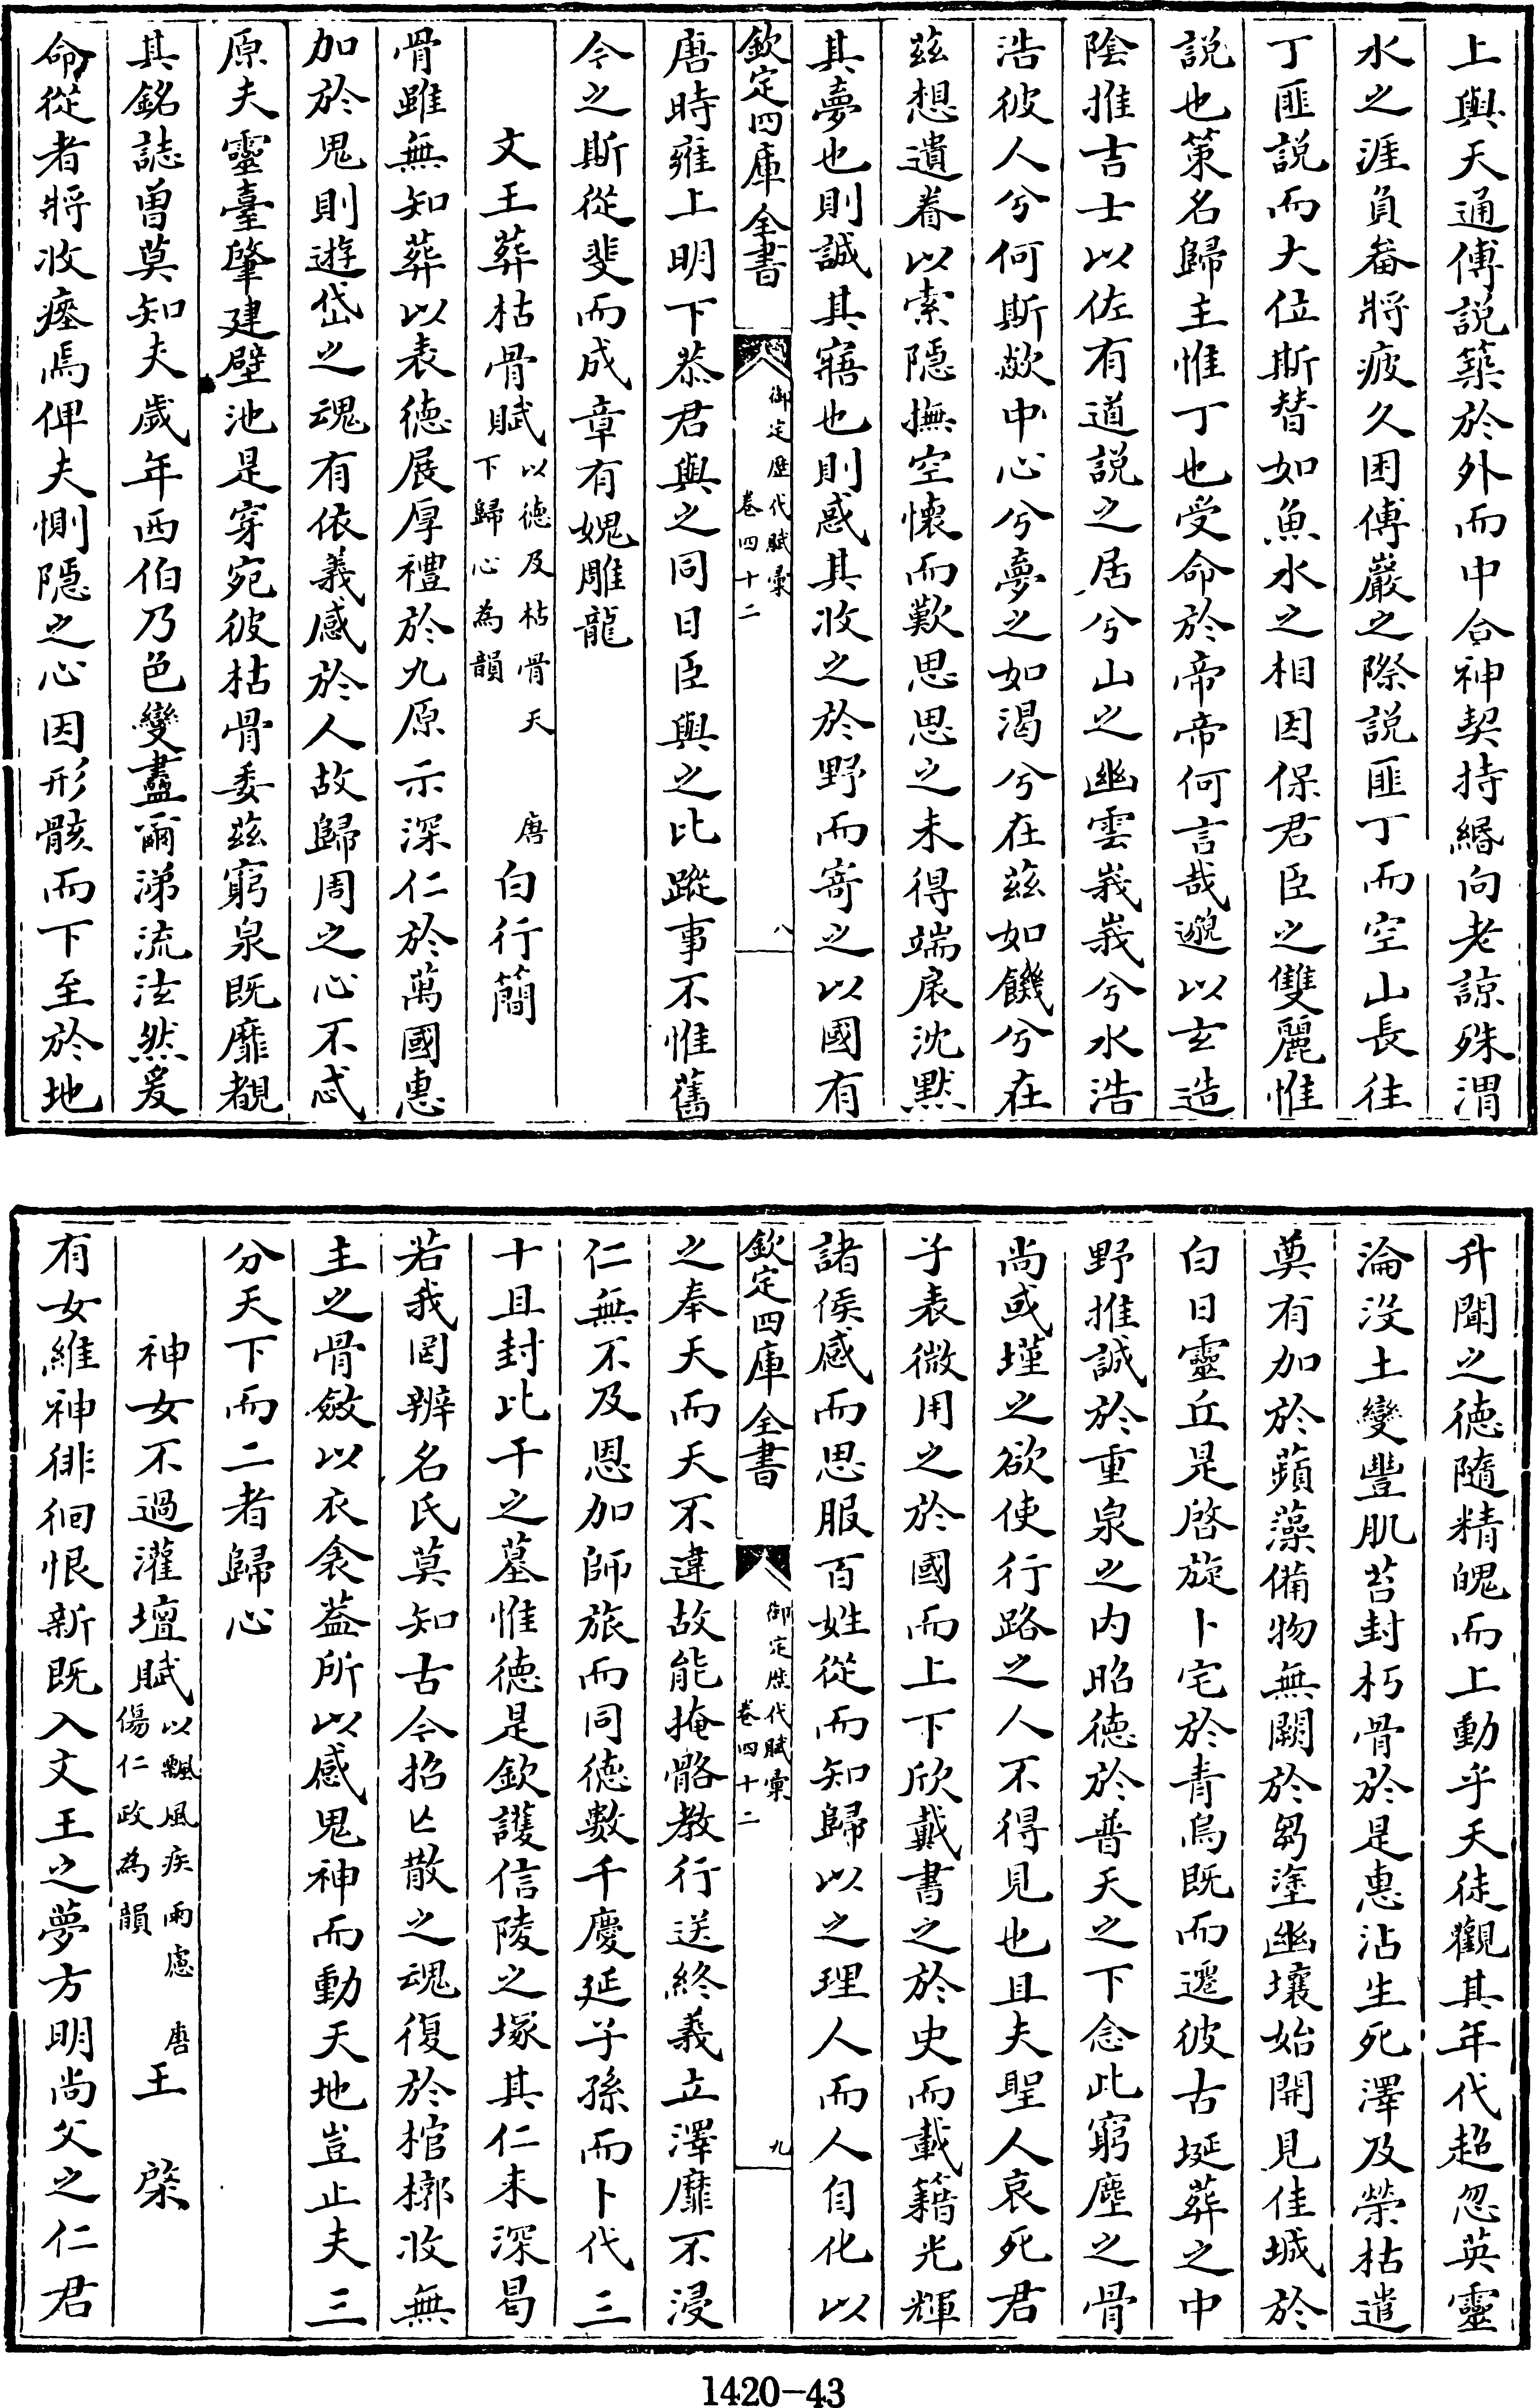 上與天通傅説築於外而中合神契持緡向老諒殊渭
水之涯負畚將疲久困傅巖之際説匪丁而空山長往
丁匪説而大位斯替如魚水之相因保君臣之雙麗惟
説也策名歸主惟丁也受命於帝帝何言哉邈以玄造
陰推吉士以佐有道説之居兮山之幽雲峩峩兮水浩
浩彼人兮何斯歘中心兮夢之如渴兮在兹如饑兮在
兹想遺眷以索隠撫空懷而歎思思之未得端扆沈黙
其夢也則誠其寤也則惑其收之於野而寄之以國有
欽定四庫全書
御定歴代賦彙
卷四十二
八
唐時雍上明下恭君與之同日臣與之比蹤事不惟舊
今之斯從斐而成章有媿雕龍
文王葬枯骨賦以徳及枯骨天下歸心為韻 唐白行簡
骨雖無知葬以表徳展厚禮於九原示深仁於萬國惠
加於鬼則遊岱之魂有依義感於人故歸周之心不忒
原夫靈臺肇建壁池是穿宛彼枯骨委兹窮泉既靡覩
其銘誌曽莫知夫歲年西伯乃色變盡爾涕流泫然爰
命從者將收瘞焉俾夫惻隠之心因形骸而下至於地
升聞之徳隨精魄而上動乎天徒觀其年代超忽英靈
淪没土變豐肌苔封朽骨於是惠沾生死澤及榮枯遣
奠有加於蘋藻備物無闕於芻塗幽壤始開見佳城於
白日靈丘是啓旋卜宅於青烏既而遷彼古埏葬之中
野推誠於重泉之内昭徳於普天之下念此窮塵之骨
尚或墐之欲使行路之人不得見也且夫聖人哀死君
子表微用之於國而上下欣戴書之於史而載籍光輝
諸侯感而思服百姓從而知歸以之理人而人自化以
欽定四庫全書
御定歴代賦彙
卷四十二
九
之奉天而天不違故能掩骼教行送終義立澤靡不浸
仁無不及恩加師旅而同徳數千慶延子孫而卜代三
十且封比干之墓惟徳是欽護信陵之塚其仁未深曷
若我罔辨名氏莫知古今招亡散之魂復於棺槨收無
主之骨斂以衣衾葢所以感鬼神而動天地豈止夫三
分天下而二者歸心
神女不過灌壇賦以飄風疾雨慮傷仁政為韻 唐王棨
有女維神徘徊恨新既入文王之夢方明尚父之仁君
1420-43